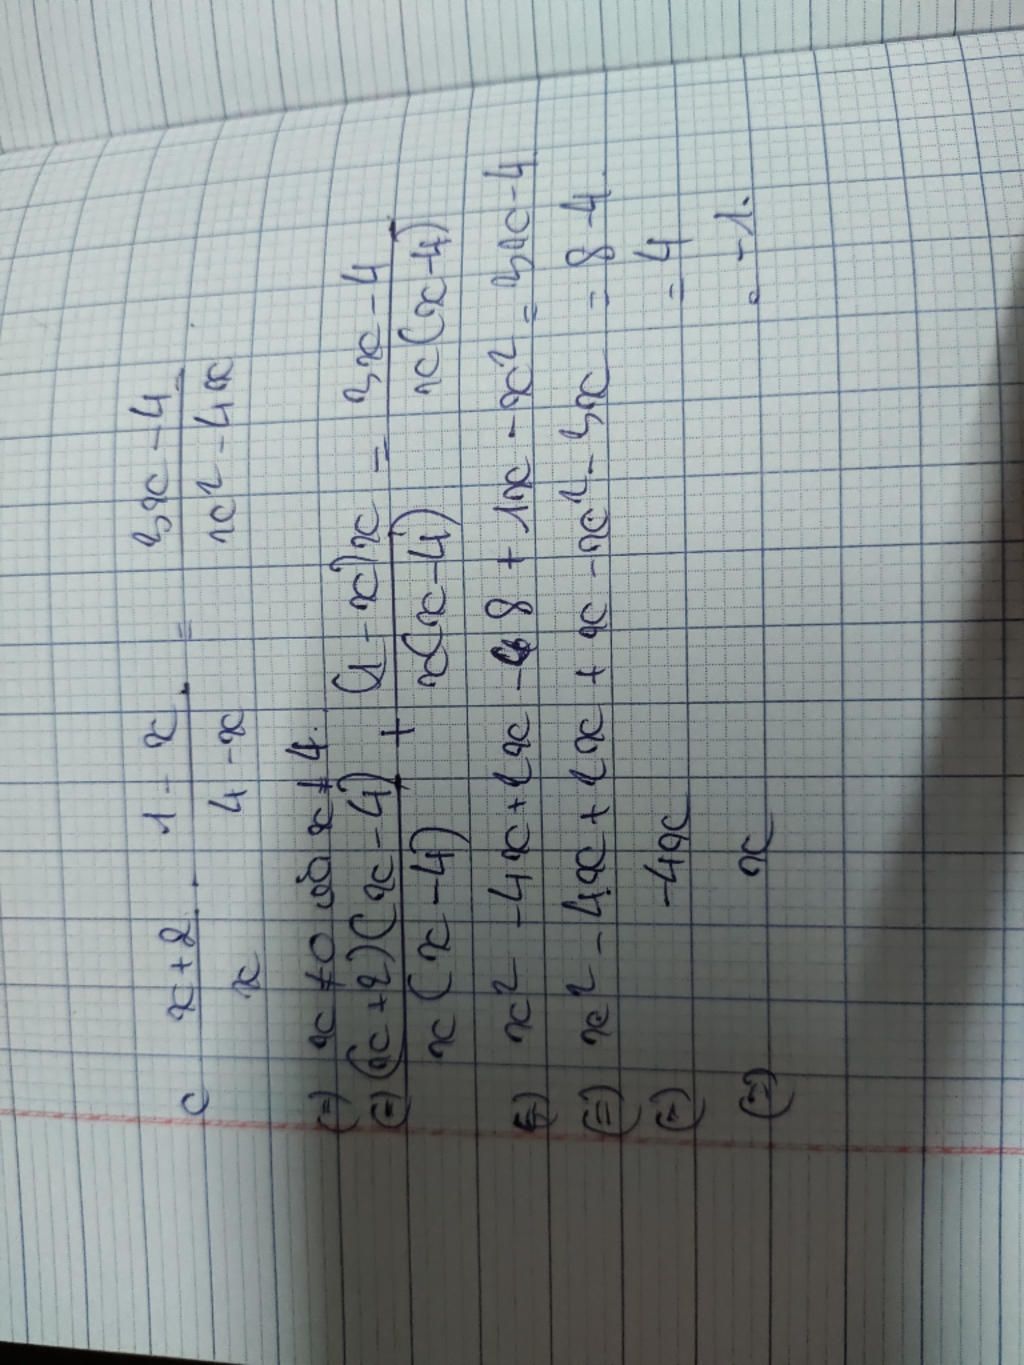 c x+2/x - 1-x/4-x = 3x-4/x²-4x
(=) x ≠ 0 x ≠ 4.
(=) (x+2)(x-4)/x(x-4) + (1-x)x/x(x-4) = 3x-4/x(x-4)
(=) x² -4x+2x -8 + 1x -x² = 3x-4
(=) x² -4x+2x + x -x² -3x = 8-4.
(=) -4x = 4
(=) x = -1.